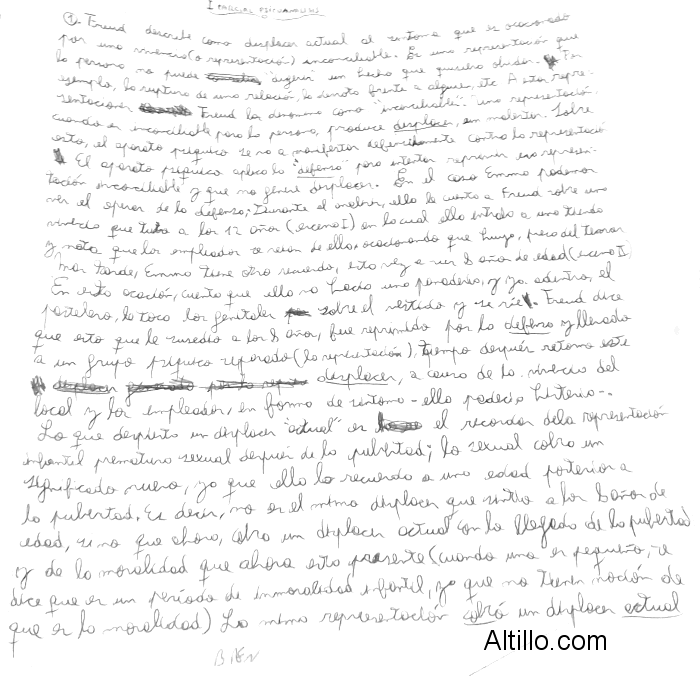 I PARCIAL PSICOANALISIS
1. Freud describe como displacer actual al sintoma que es ocacionado
por una vivencia (o representación) inconciliable. Es una representación que
la persona no puede "digerir" un hecho que quisiera olvidar. Por
ejemplo, la ruptura de una relación, la derrota frente a alguien, etc. A estas repre-
sentaciones Freud las denomina como "inconciliable": una representación
cuando es inconciliable para la persona, produce displacer, un malestar. Sobre
esto, el aparato psiquico se va a manifestar defensivamente contra la representació
El aparato psiquico aplica la "defensa" para intentar reprimir esa represen-
tación inconciliable y que no genere displacer. En el caso Emma podemos
ver el operar de la defensa; Durante el analisis, ella le cuenta a Freud sobre una
vivencia que tubo a los 12 años (escena I) en la cual ella entraba a una tienda
y nota que los empleados se reian de ella, ocacionando que huya, presa del terror
Mas tarde, Emma tiene otro recuerdo, esta vez a sus 8 años de edad (escena II)
En esta ocación, cuenta que ella va hacia una panaderia, y ya adentro, el
pastelero, le toca los genitales sobre el vestido y se ríe. Freud dice
que esto que le sucedio a los 8 años, fue reprimido por la defensa y llevado
a un grupo psiquico separado (la representación), tiempo después retorna este
displacer, a causa de la vivencia del
local y los empleados, en forma de sintoma - ella padecia histeria -.
Lo que despierta un displacer "actual" es el recordar de la representación
infantil prematura sexual después de la pubertad; lo sexual cobra un
significado nuevo, ya que ella lo recuerda a una edad posterior a
la pubertad. Es decir, no es el mismo displacer que sintio a los 8 años de
edad, si no que ahora, cobra un displacer actual con la llegada de la pubertad
y de la moralidad que ahora esta presente (cuando uno es pequeño, se
dice que es un período de inmoralidad infantil, ya que no tienen noción de
que es la moralidad) La misma representación cobró un displacer actual
BIEN
Altillo.com